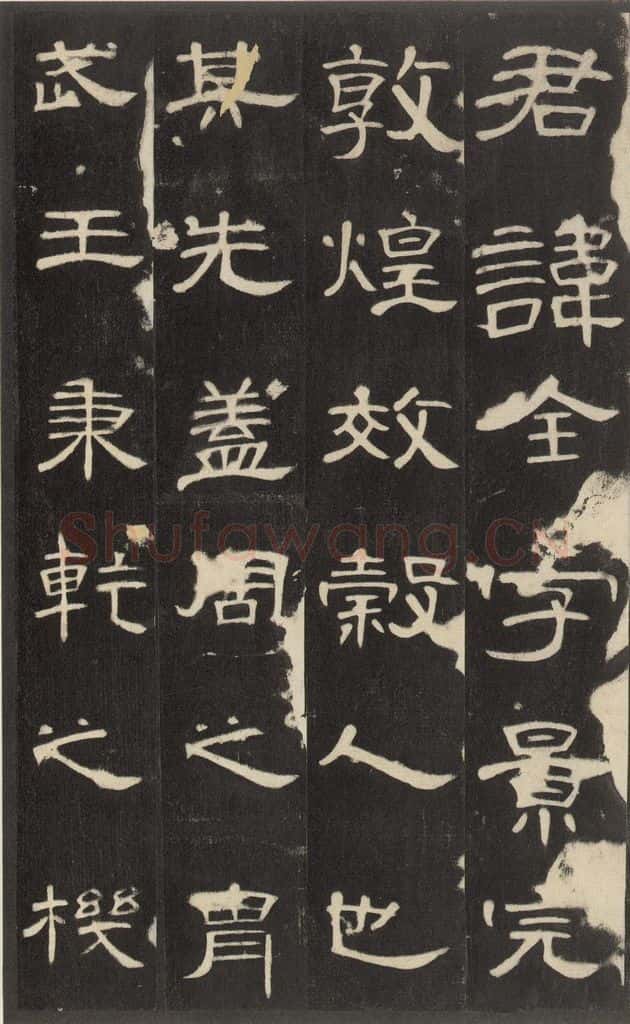 君諱全字景完
敦煌效穀人也
其先蓋周之胄
武王秉乾之機
Shufawang.cn